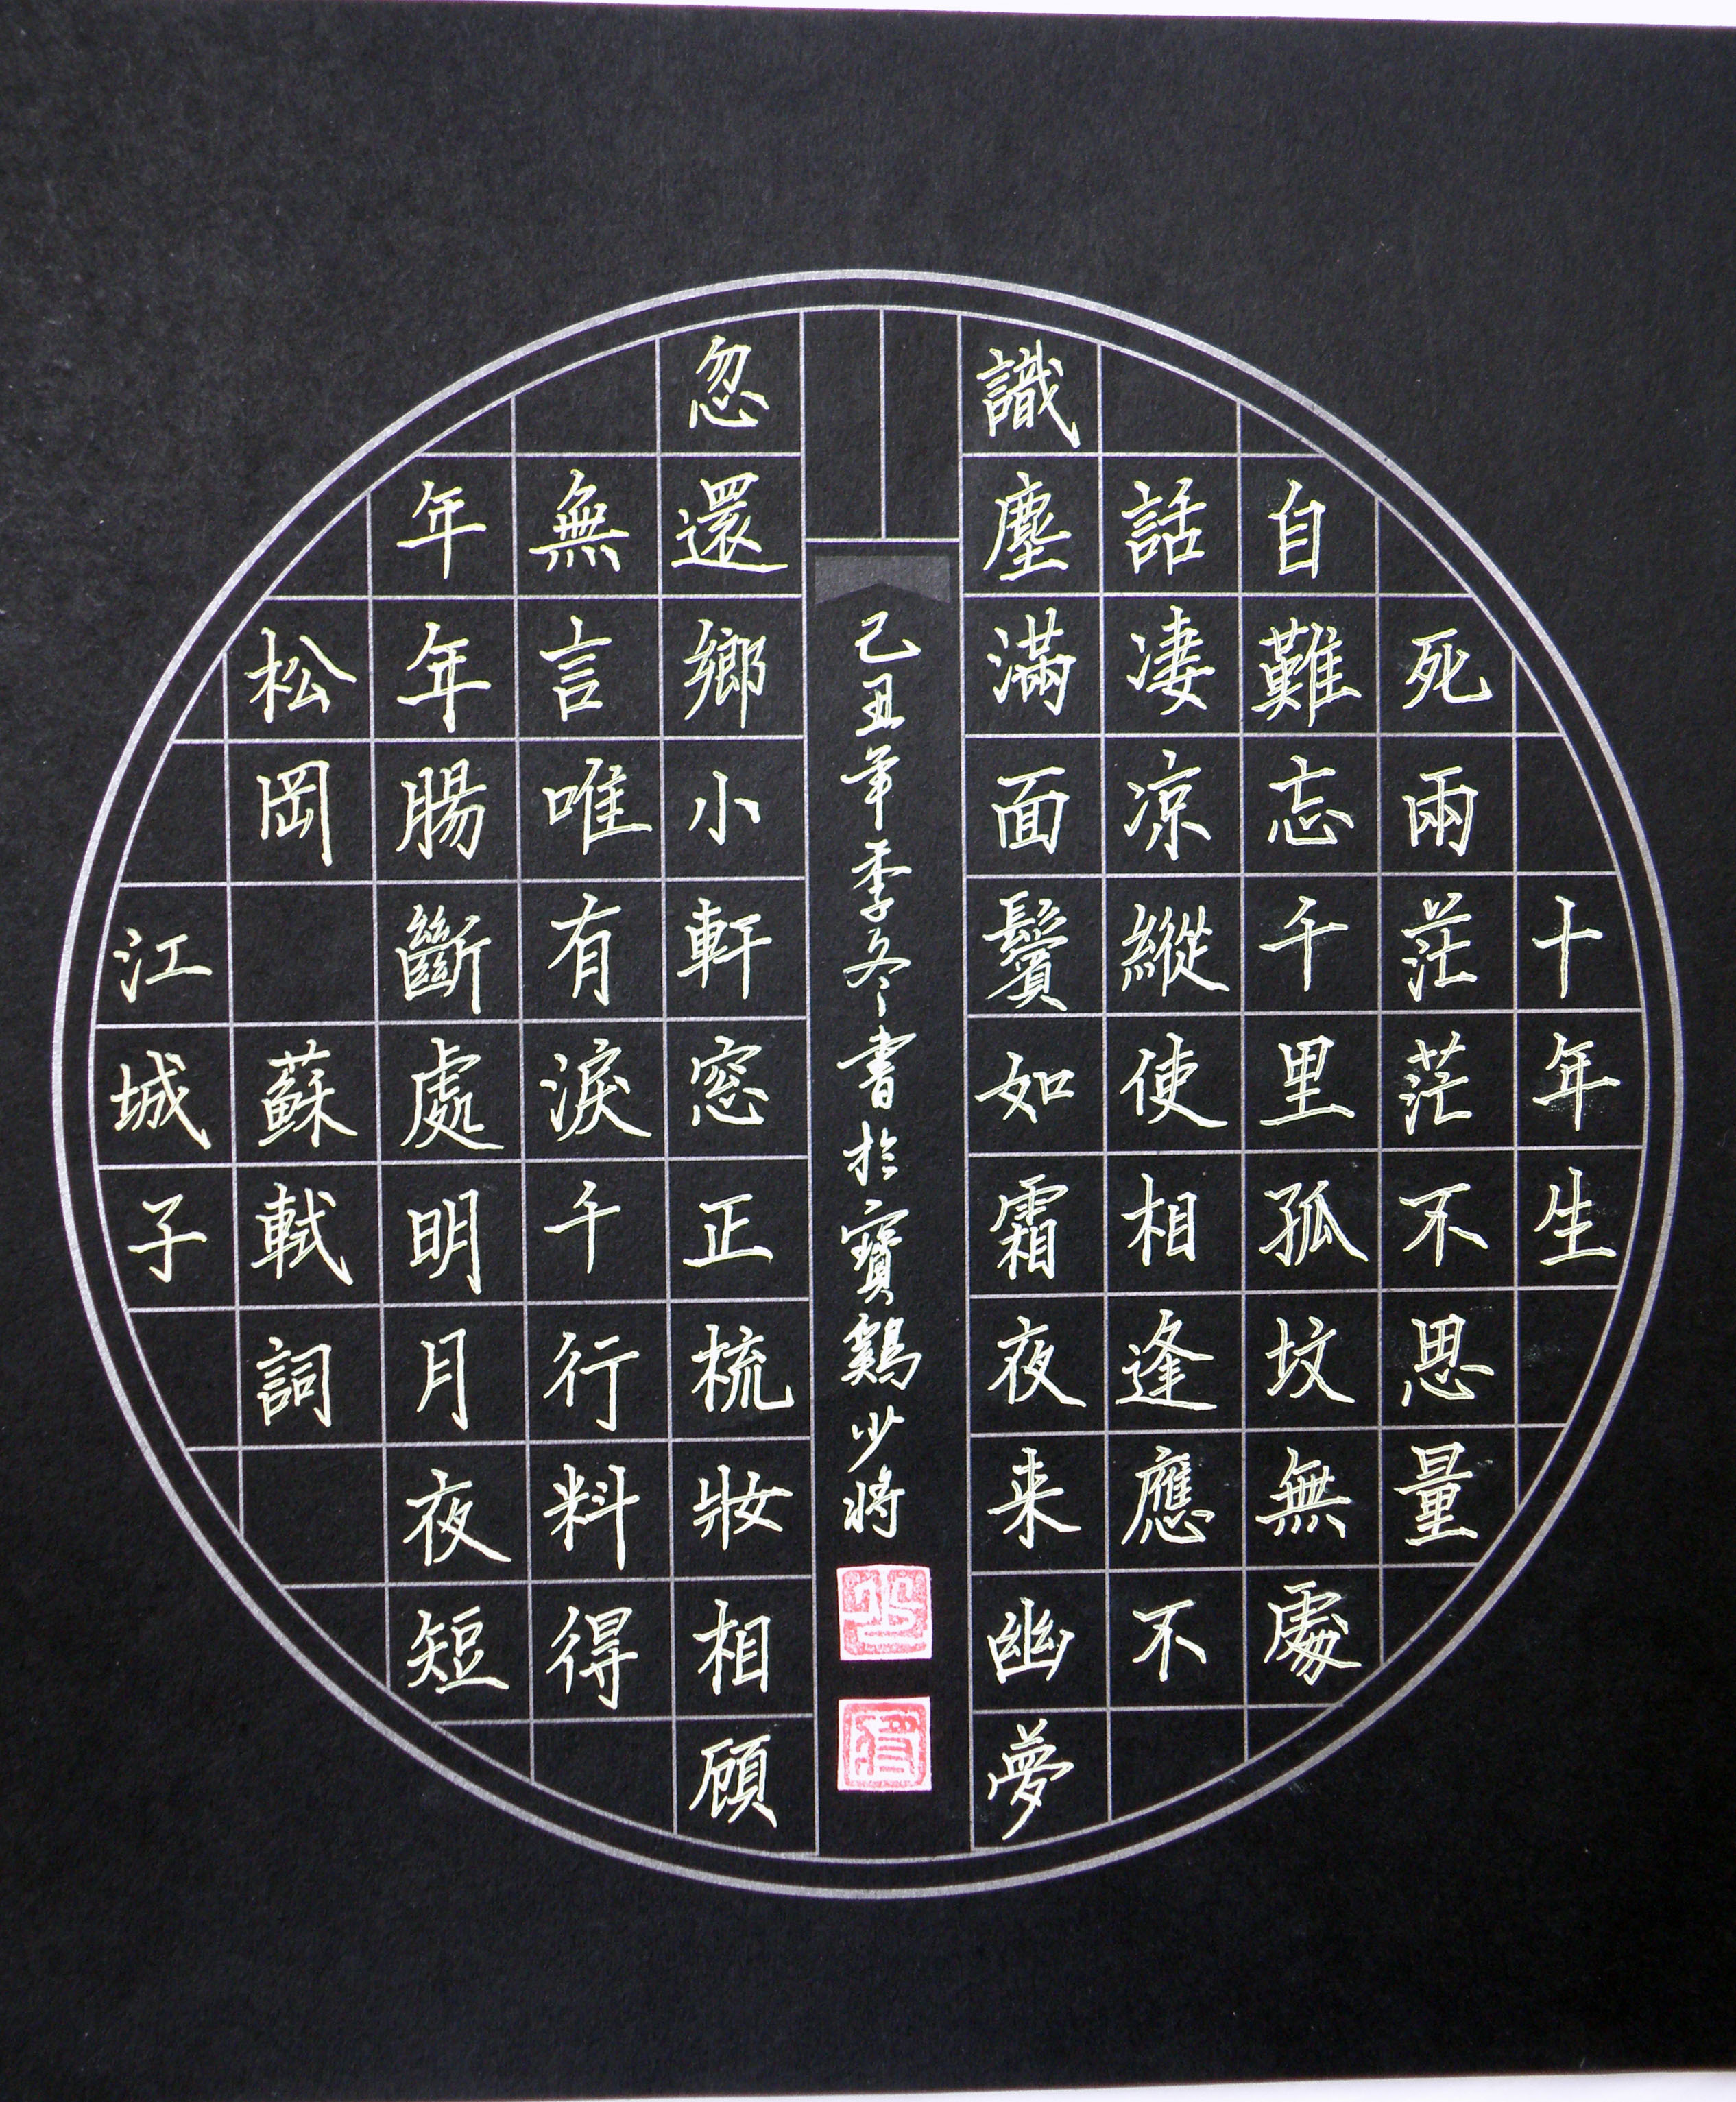 十年生
死兩茫茫不思量
自難忘千里孤墳無處
話凄凉縱使相逢應不
識塵滿面鬢如霜夜来幽夢
忽還鄉小軒窓正梳妝相顧
無言唯有淚千行料得
年年腸斷處明月夜短
松岡
蘇軾詞
江城子
己丑年季冬書於寶鷄少將